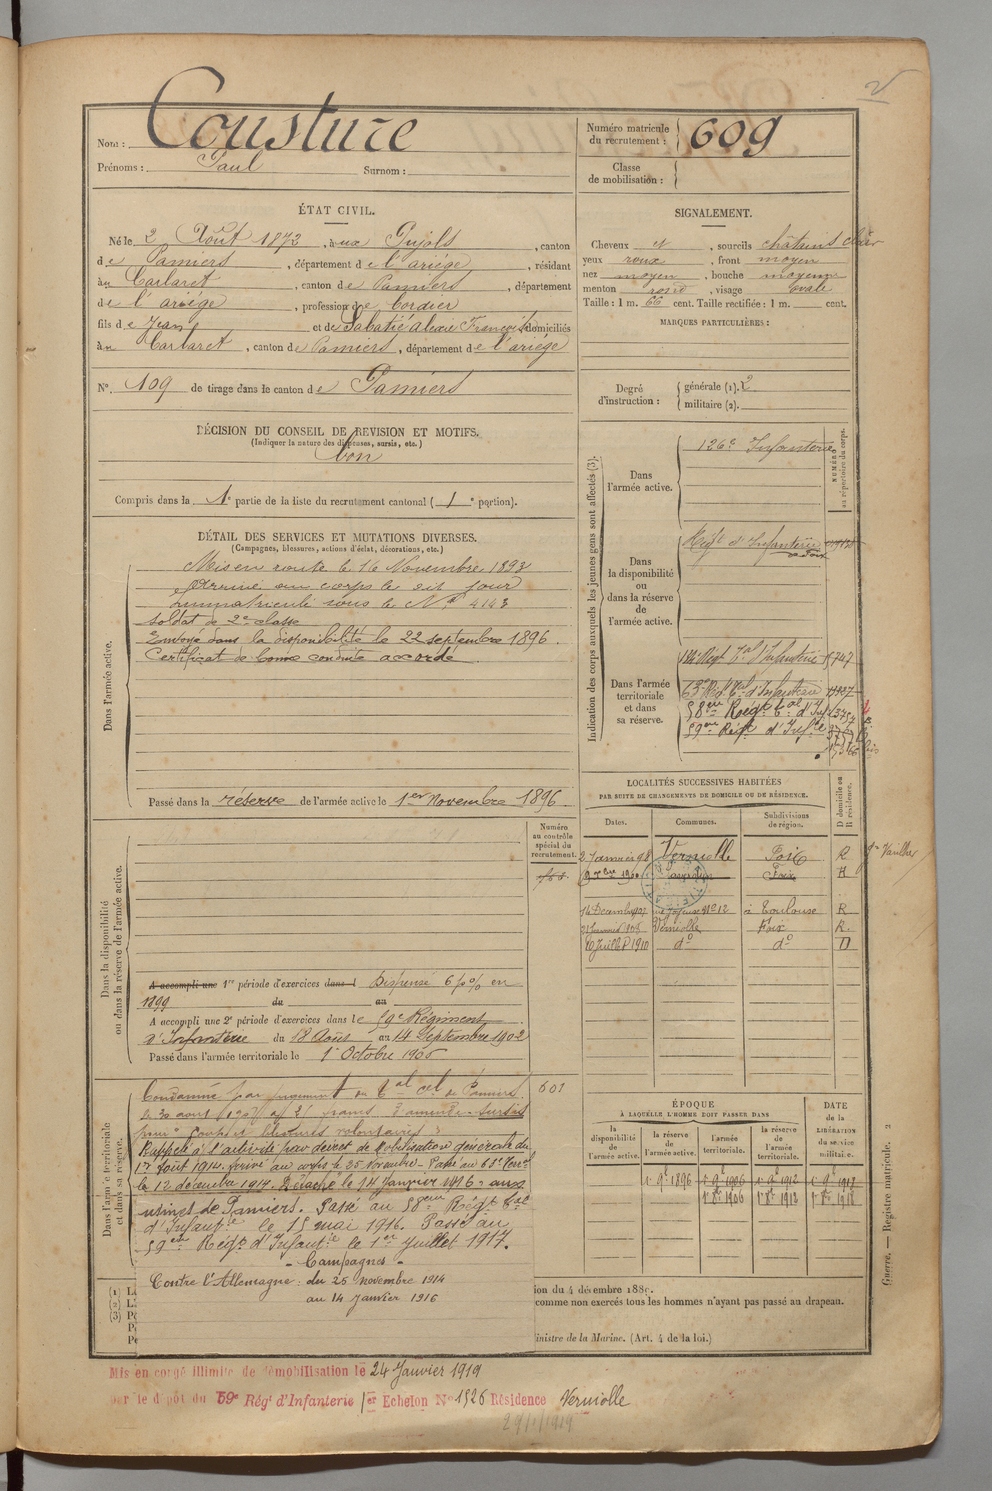 Nom : Cousture
Prénoms : Paul Surnom :
Numéro matricule du recrutement : 609
Classe de mobilisation :
ÉTAT CIVIL.
Né le 2 Août 1872, à aux Pujols, canton
de Pamiers, département de l'ariège, résidant
à au Carlaret, canton de Pamiers, département
de l'ariège, profession de Cordier
fils de Jean et de Sabatié Alexie Françoise, domiciliés
à au Carlaret, canton de Pamiers, département de l'ariège
N°. 109 de tirage dans le canton de Pamiers
DÉCISION DU CONSEIL DE REVISION ET MOTIFS.
(Indiquer la nature des dispenses, sursis, etc.)
bon
Compris dans la 1e partie de la liste du recrutement cantonal ( 1e portion).
SIGNALEMENT.
Cheveux et, sourcils châtains clair
yeux roux, front moyen
nez moyen, bouche moyenne
menton rond, visage ovale
Taille : 1 m. 66 cent. Taille rectifiée : 1 m. cent.
MARQUES PARTICULIÈRES :
Degré d'instruction : générale (1). 2
militaire (2).
DÉTAIL DES SERVICES ET MUTATIONS DIVERSES.
(Campagnes, blessures, actions d'éclat, décorations, etc.)
Dans l'armée active.
Mis en route le 16 Novembre 1893
Arrivé au corps le dit jour
immatriculé sous le N° 4143
soldat de 2e classe
Envoyé dans la disponibilité le 22 septembre 1896.
Certificat de bonne conduite accordé
Passé dans la réserve de l'armée active le 1er Novembre 1896.
Indication des corps auxquels les jeunes gens sont affectés (3).
NUMÉRO au répertoire du corps.
Dans l'armée active.
126e Infanterie
Dans la disponibilité ou dans la réserve de l'armée active.
Regt d'Infanterie
Dans l'armée territoriale et dans sa réserve.
134 Regt Tal d'Infanterie 15747
63e Rt Tal d'Infanterie
58eme Régt Tal d'Inf
59eme Régt d'Infie
LOCALITÉS SUCCESSIVES HABITÉES
PAR SUITE DE CHANGEMENTS DE DOMICILE OU DE RÉSIDENCE.
Dates. Communes. Subdivisions de région. D domicile ou R résidence.
2 Janvier 98 Verniolle Foix R
Foix
14 Décembre 1907 N° 12 à Toulouse R
Verniolle Foix R.
Juillet 1910 d° d° D
Numéro au contrôle spécial du recrutement.
Dans la disponibilité ou dans la réserve de l'armée active.
A accompli une 1re période d'exercices dans l Dispensé 6 p % en
1899 du au
A accompli une 2e période d'exercices dans le 59e Régiment
d'Infanterie du 18 Août au 14 Septembre 1902
Passé dans l'armée territoriale le 1er Octobre 1906
Dans l'armée territoriale et dans sa réserve.
Condamné par jugement du Tal cel de Pamiers 601
du 30 aout 1907 à 25 francs d'amende - sursis
pour coups et blessures volontaires
Rappelé à l'activité par décret de Mobilisation générale du
1er Août 1914. Arrivé au corps le 25 Novembre. Passé au 63e Terral
le 12 décembre 1914. Détaché le 14 Janvier 1916 aux
usines de Pamiers. Passé au 58eme Régt Tal
d'Infantie le 15 mai 1916. Passé au
59eme Régt d'Infantie le 1er Juillet 1917.
- Campagnes -
Contre l'Allemagne : du 25 novembre 1914
au 14 Janvier 1916
ÉPOQUE
À LAQUELLE L'HOMME DOIT PASSER DANS
la disponibilité de l'armée active.
la réserve de l'armée active.
l'armée territoriale.
la réserve de l'armée territoriale.
DATE de la LIBÉRATION du service militaire.
1 9e 1896 1 9e 1906 1 9e 1912
1 8e 1906
ion du 4 décembre 1889.
comme non exercés tous les hommes n'ayant pas passé au drapeau.
inistre de la Marine. (Art. 4 de la loi.)
Guerre. — Registre matricule. 2
Mis en congé illimité de démobilisation le 24 Janvier 1919
par le dépôt du 59e Régt d'Infanterie 1er Echelon N° 1526 Résidence Verniolle